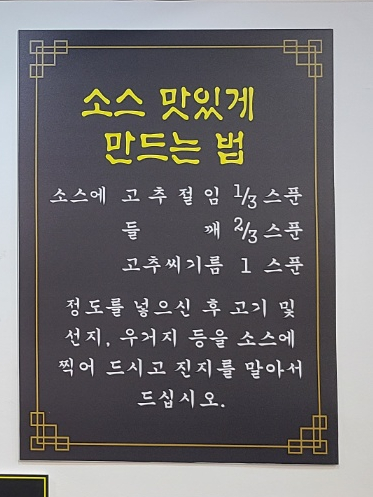 소스 맛있게
만드는 법
소스에 고추절임 1/3 스푼
들 깨 2/3 스푼
고추씨기름 1 스푼
정도를 넣으신 후 고기 및
선지, 우거지 등을 소스에
찍어 드시고 진지를 말아서
드십시오.